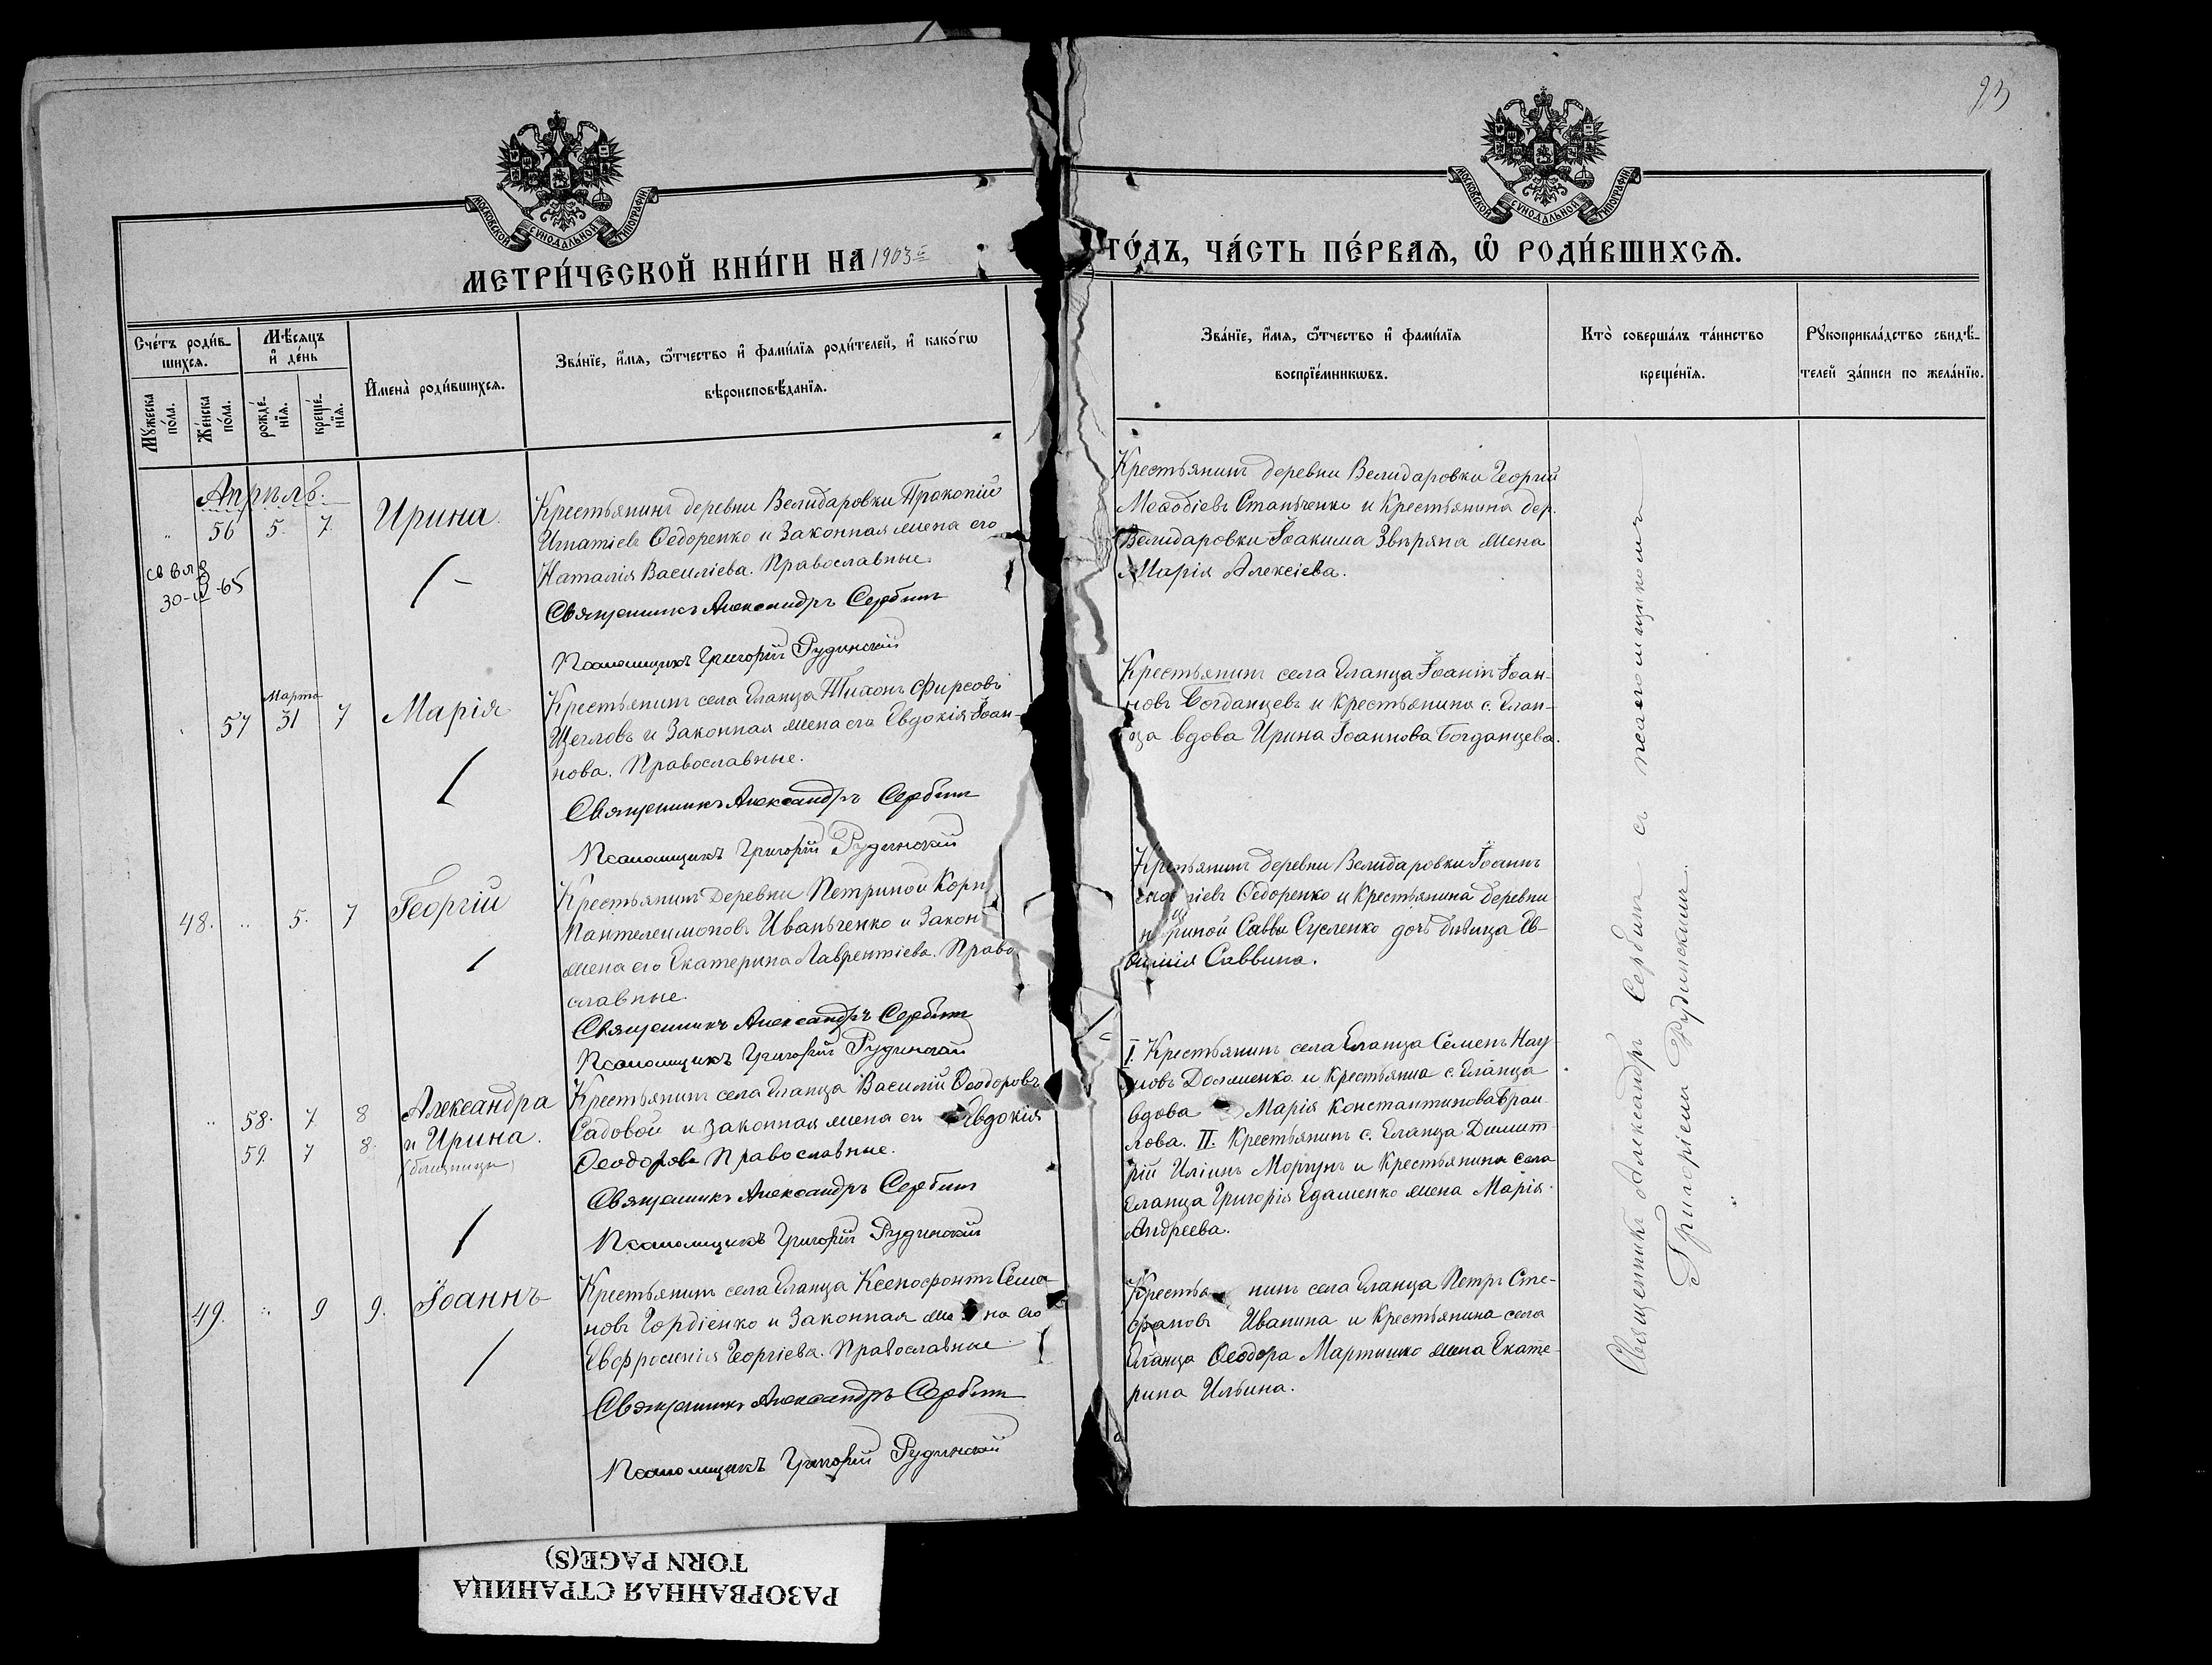 93
МОСКОВСКОЙ СѴНОДАЛЬНОЙ ТИПОГРАФІИ
МОСКОВСКОЙ СѴНОДАЛЬНОЙ ТИПОГРАФІИ
МЕТРИ́ЧЕСКОЙ КНИ́ГИ НА 1903й
ГО́ДЪ, ЧА́СТЬ ПЕ́РВАѦ, Ѽ РОДИ́ВШИХСѦ.
Сче́тъ роди́в-
шихсѧ.
Мѣ́сѧцъ
и҆ де́нь
Му́жеска
по́ла.
Же́нска
по́ла.
рожде́-
нїѧ.
креще́-
нїѧ.
И҆мена̀ роди́вшихсѧ.
Зва́нїе, и҆́мѧ, ѻ҆́тчество и҆ фами́лїѧ роди́телей, и҆ како́гѡ
вѣроисповѣ́данїѧ.
Зва́нїе, и҆́мѧ, ѻ҆́тчество и҆ фами́лїѧ
воспрїе́мникѡвъ.
Кто̀ соверша́лъ та́инство
креще́нїѧ.
Рукоприкла́дство свидѣ́-
телей за́писи по жела́нїю.
Апрѣль.
" 56 5. 7. Ирина.
Крестьянинъ деревни Велидаровки Прокопій
Игнатіевъ Ѳедоренко и Законная жена его
Наталія Василіева. Православные.
Священникъ Александръ Сербинъ
Псаломщикъ Григорій Рудинскій
30-IV-65
Крестьянинъ деревни Велидаровки Георгій
Меѳодіевъ Станьченко и Крестьянина дер.
Велидаровки Іоакима Звѣряка жена
Марія Алексіева.
Марта
57 31 7 Марія
Крестьянинъ села Еланца Тихонъ Фирсовъ
Щегловъ и Законная жена его Евдокія Іоан-
нова. Православные.
Священникъ Александръ Сербинъ
Псаломщикъ Григорій Рудинскій
Крестьянинъ села Еланца Іоаннъ Іоан-
новъ Богданцевъ и Крестьянина с. Елан-
ца вдова Ирина Іоаннова Богданцева.
48. " 5. 7 Георгій
Крестьянинъ Деревни Петриной Корн
Пантелеимоновъ Иваньченко и Закон
жена его Екатерина Лаврентіева. Право
славные.
Священникъ Александръ Сербинъ
Псаломщикъ Григорій Рудинскій
Крестьянинъ деревни Велидаровки Іоаннъ
гіевъ Ѳедоренко и Крестьянина деревни
риной Саввы Сусленко дочь дѣвица Ев-
ѳимія Саввина.
" 58. 7 8 Александра
59. 7 8. и Ирина.
(близнецы)
Крестьянинъ села Еланца Василій Ѳеодоровъ
Садовой и законная жена его Евдокія
Ѳеодорова Православные.
Священникъ Александръ Сербинъ
Псаломщикъ Григорій Рудинскій
I. Крестьянинъ села Еланца Семенъ Нау-
мовъ Долженко и Крестьянина с. Еланца
вдова Марія Константинова Браи
лова. II. Крестьянинъ с. Еланца Димит-
рій Иліинъ Моргунъ и Крестьянина села
Еланца Григорія Едаменко жена Марія
Андреева.
49. " 9 9. Іоаннъ
Крестьянинъ села Еланца Ксенофонтъ Симо-
новъ Гордіенко и Законная жена его
Евфросинія Георгіева. Православные
Священникъ Александръ Сербинъ
Псаломщикъ Григорій Рудинскій
Крестьянинъ села Еланца Петръ Сте-
фановъ Иванина и Крестьянина села
Еланца Ѳеодора Мартишко жена Екате-
рина Ильина.
Священникъ Александръ Сербинъ съ псаломщикомъ
Григоріемъ Рудинскимъ.
РАЗОРВАННАЯ СТРАНИЦА
TORN PAGE(S)